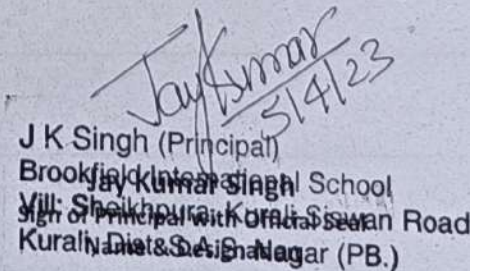 JayKumar
5/4/23
J K Singh (Principal)
Brookfield International School
Jay Kumar Singh
Vill: Sheikhpura, Kurali-Siswan Road
Sign of Principal with Official Seal
Kurali, Dist. S.A.S. Nagar (PB.)
Name & Designation